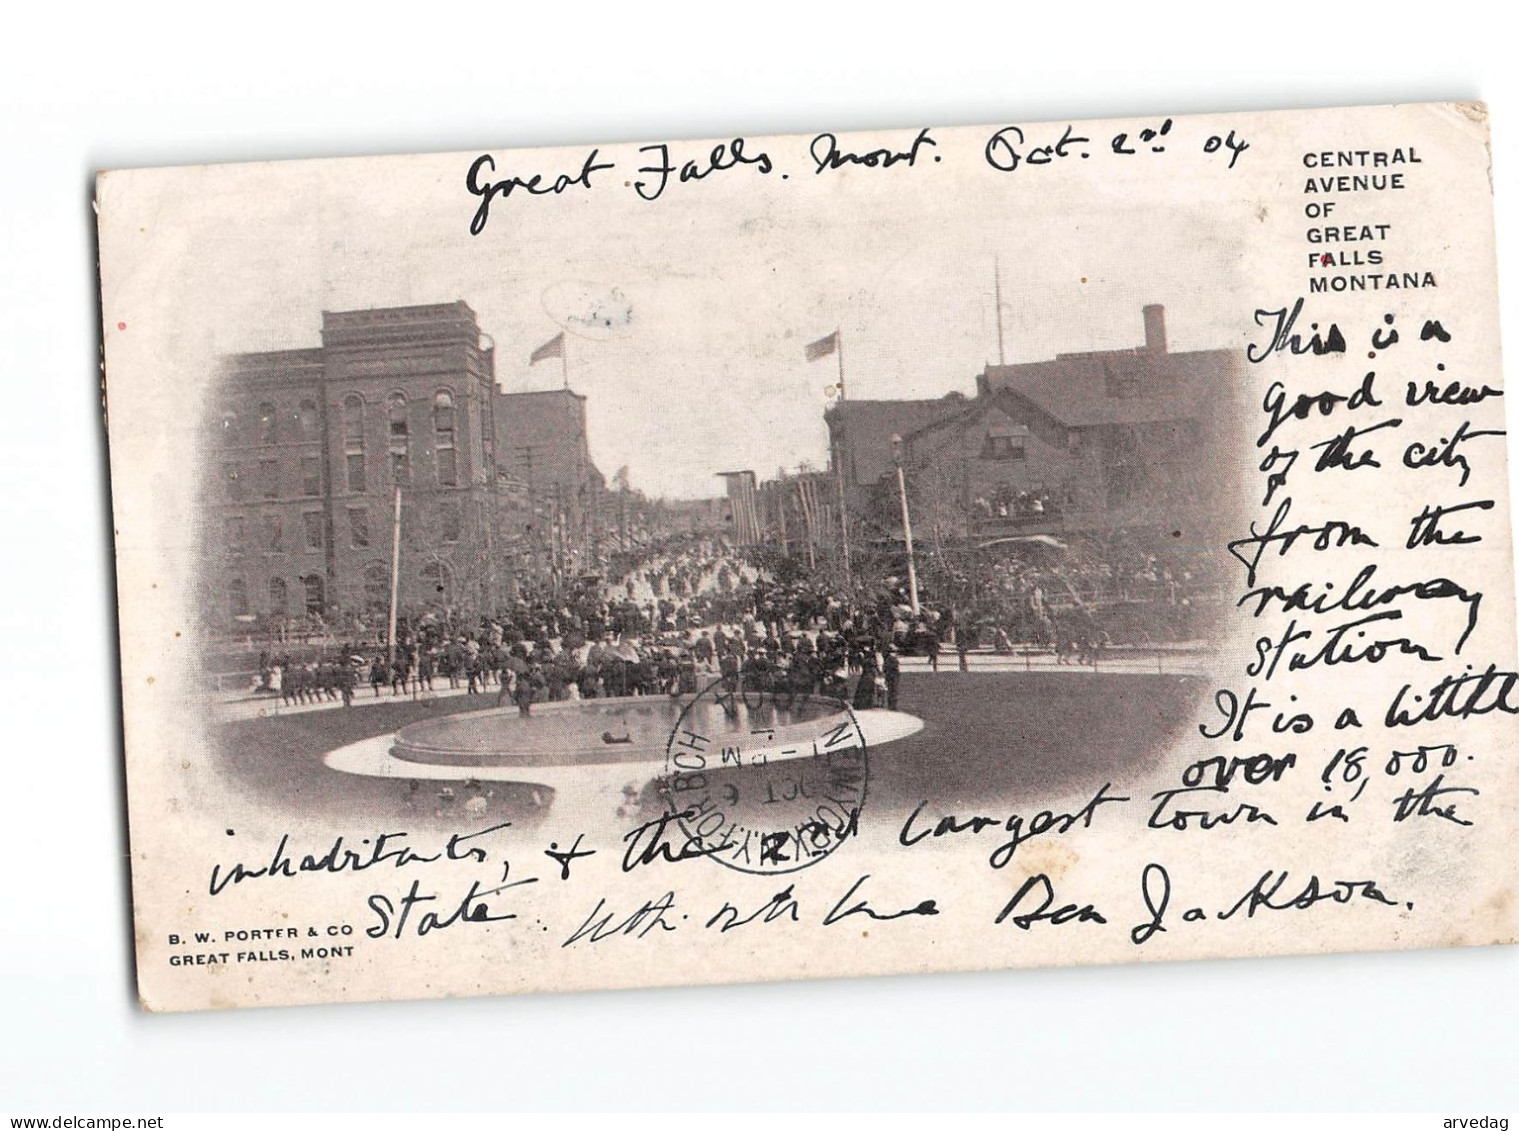 Great Falls. Mont. Oct. 2nd. 04
CENTRAL
AVENUE
OF
GREAT
FALLS
MONTANA
This is a
good view
of the city
from the
railway
station,
It is a little
over 18,000.
inhabitants, & the 2nd largest town in the
State. with love Ben Jackson.
B. W. PORTER & CO
GREAT FALLS, MONT
NEW YORK, N.Y. FOR. B'CH
OCT 6
1904
www.delcampe.net
arvedag